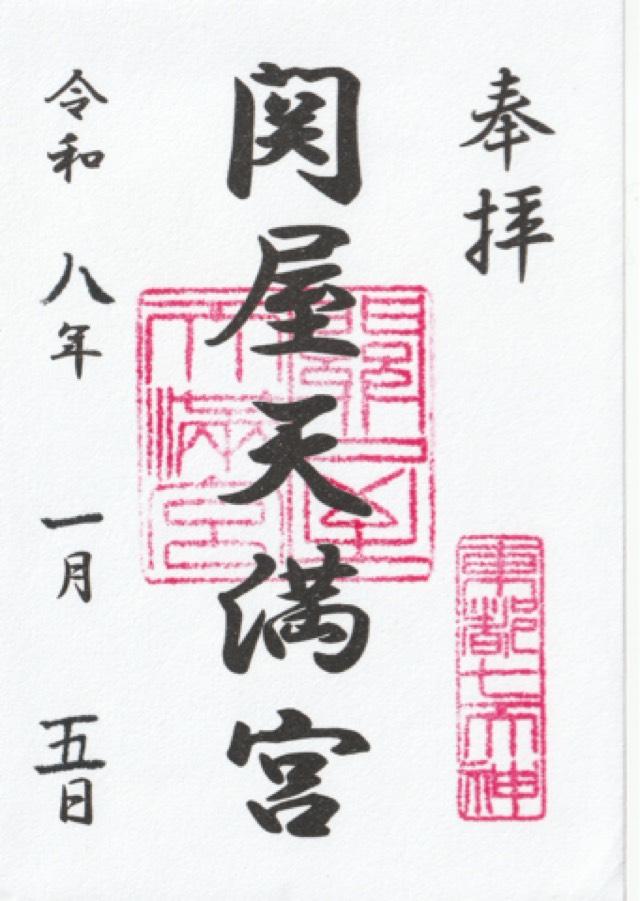 奉拝
東都七天神
関屋天満宮
関屋天満宮
令和 八年 一月 五日